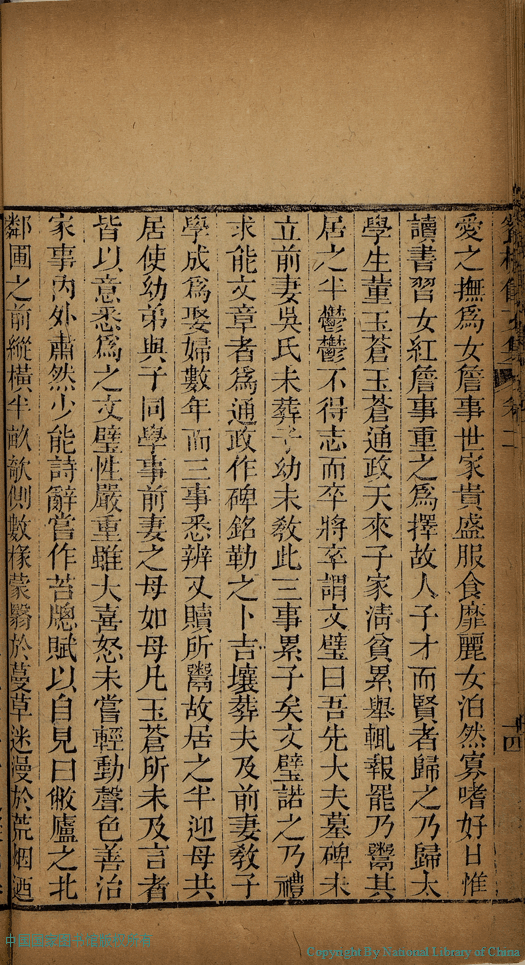 愛之撫爲女詹事世家貴盛服食靡麗女泊然寡嗜好日惟
讀書習女紅詹事重之爲擇故人子才而賢者歸之乃歸太
學生董玉蒼玉蒼通政天來子家淸貧累舉輒報罷乃鬻其
居之半鬱鬱不得志而卒將卒謂文璧曰吾先大夫墓碑未
立前妻吳氏未葬子幼未敎此三事累子矣文璧諾之乃禮
求能文章者爲通政作碑銘勒之卜吉壤葬夫及前妻敎子
學成爲娶婦數年而三事悉辨又贖所鬻故居之半迎母共
居使幼弟與子同學事前妻之母如母凡玉蒼所未及言者
皆以意悉爲之文璧性嚴重雖大喜怒未嘗輕動聲色善治
家事內外肅然少能詩辭嘗作苔牕賦以自見曰敝廬之北
鄰圃之前縱橫半畝欹側數椽蒙翳於蔓草迷漫於荒烟迺
Copyright By National Library of China